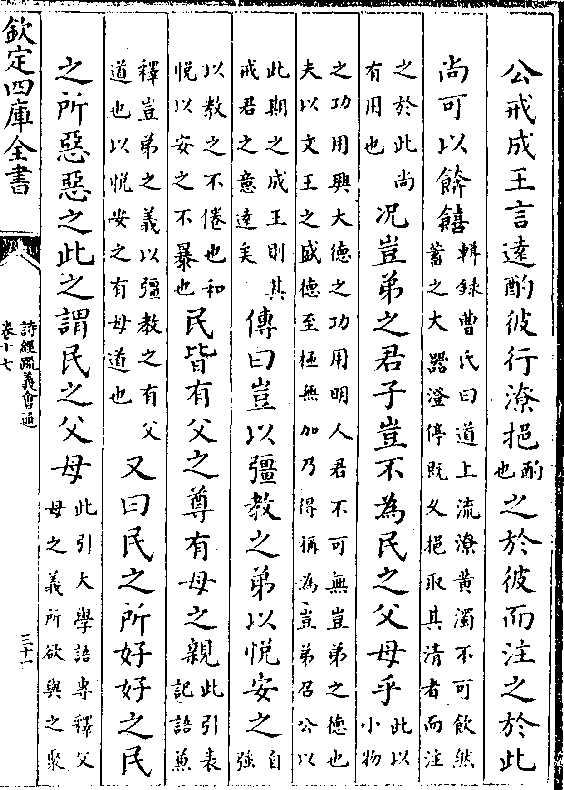 公戒成王言遠酌彼行潦挹
酌
也
之於彼而注之於此
尚可以餴饎
輯録曹氏曰道上流潦黄濁不可飲然
蓄之大器澄停既久挹取其清者而注
之於此尚
有用也
况豈弟之君子豈不為民之父母乎
此以
小物
之功用興大德之功用明人君不可無豈弟之德也
夫以文王之盛德至極無加乃得稱為豈弟召公以
此期之成王則其
戒君之意逺矣
傳曰豈以彊教之弟以悦安之
自
强
以教之不倦也和
悦以安之不暴也
民皆有父之尊有母之親
此引表
記語兼
釋豈弟之義以彊教之有父
道也以悦安之有母道也
又曰民之所好好之民
之所惡惡之此之謂民之父母
此引大學語専釋父
母之義所欲與之聚
欽定四庫全書
詩經疏義會通
卷十七
三十一